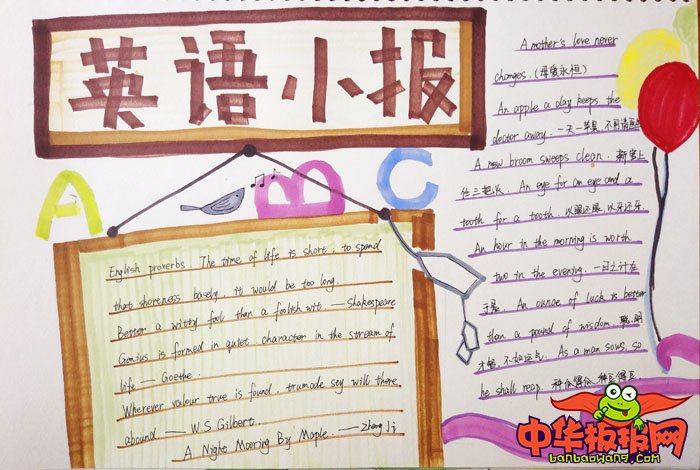 英语小报
A B C
English proverbs. The time of life is short; to spend
that shoreness basely, it would be too long.
Better a witty fool than a foolish wit. —Shakespeare
Genius is formed in quiet, character in the stream of
life — Goethe.
Wherever valour true is found, true mode sty will there
abound — W.S Gilbert.
A Night Mooring By Maple. — Zhang Ji
A mother's love never
changes. (母爱永恒)
An apple a day keeps the
doctor away. 一天一苹果,不用请医生
A new broom sweeps clean. 新官上
任三把火. An eye for an eye and a
tooth for a tooth 以眼还眼,以牙还牙.
An hour in the morning is worth
two in the evening. 一日之计在
于晨. An ounce of luck is better
than a pound of wisdom. 聪明
才智,不如运气. As a man sows, so
he shall reap. 种瓜得瓜,种豆得豆
中华板报网
banbaowang.com